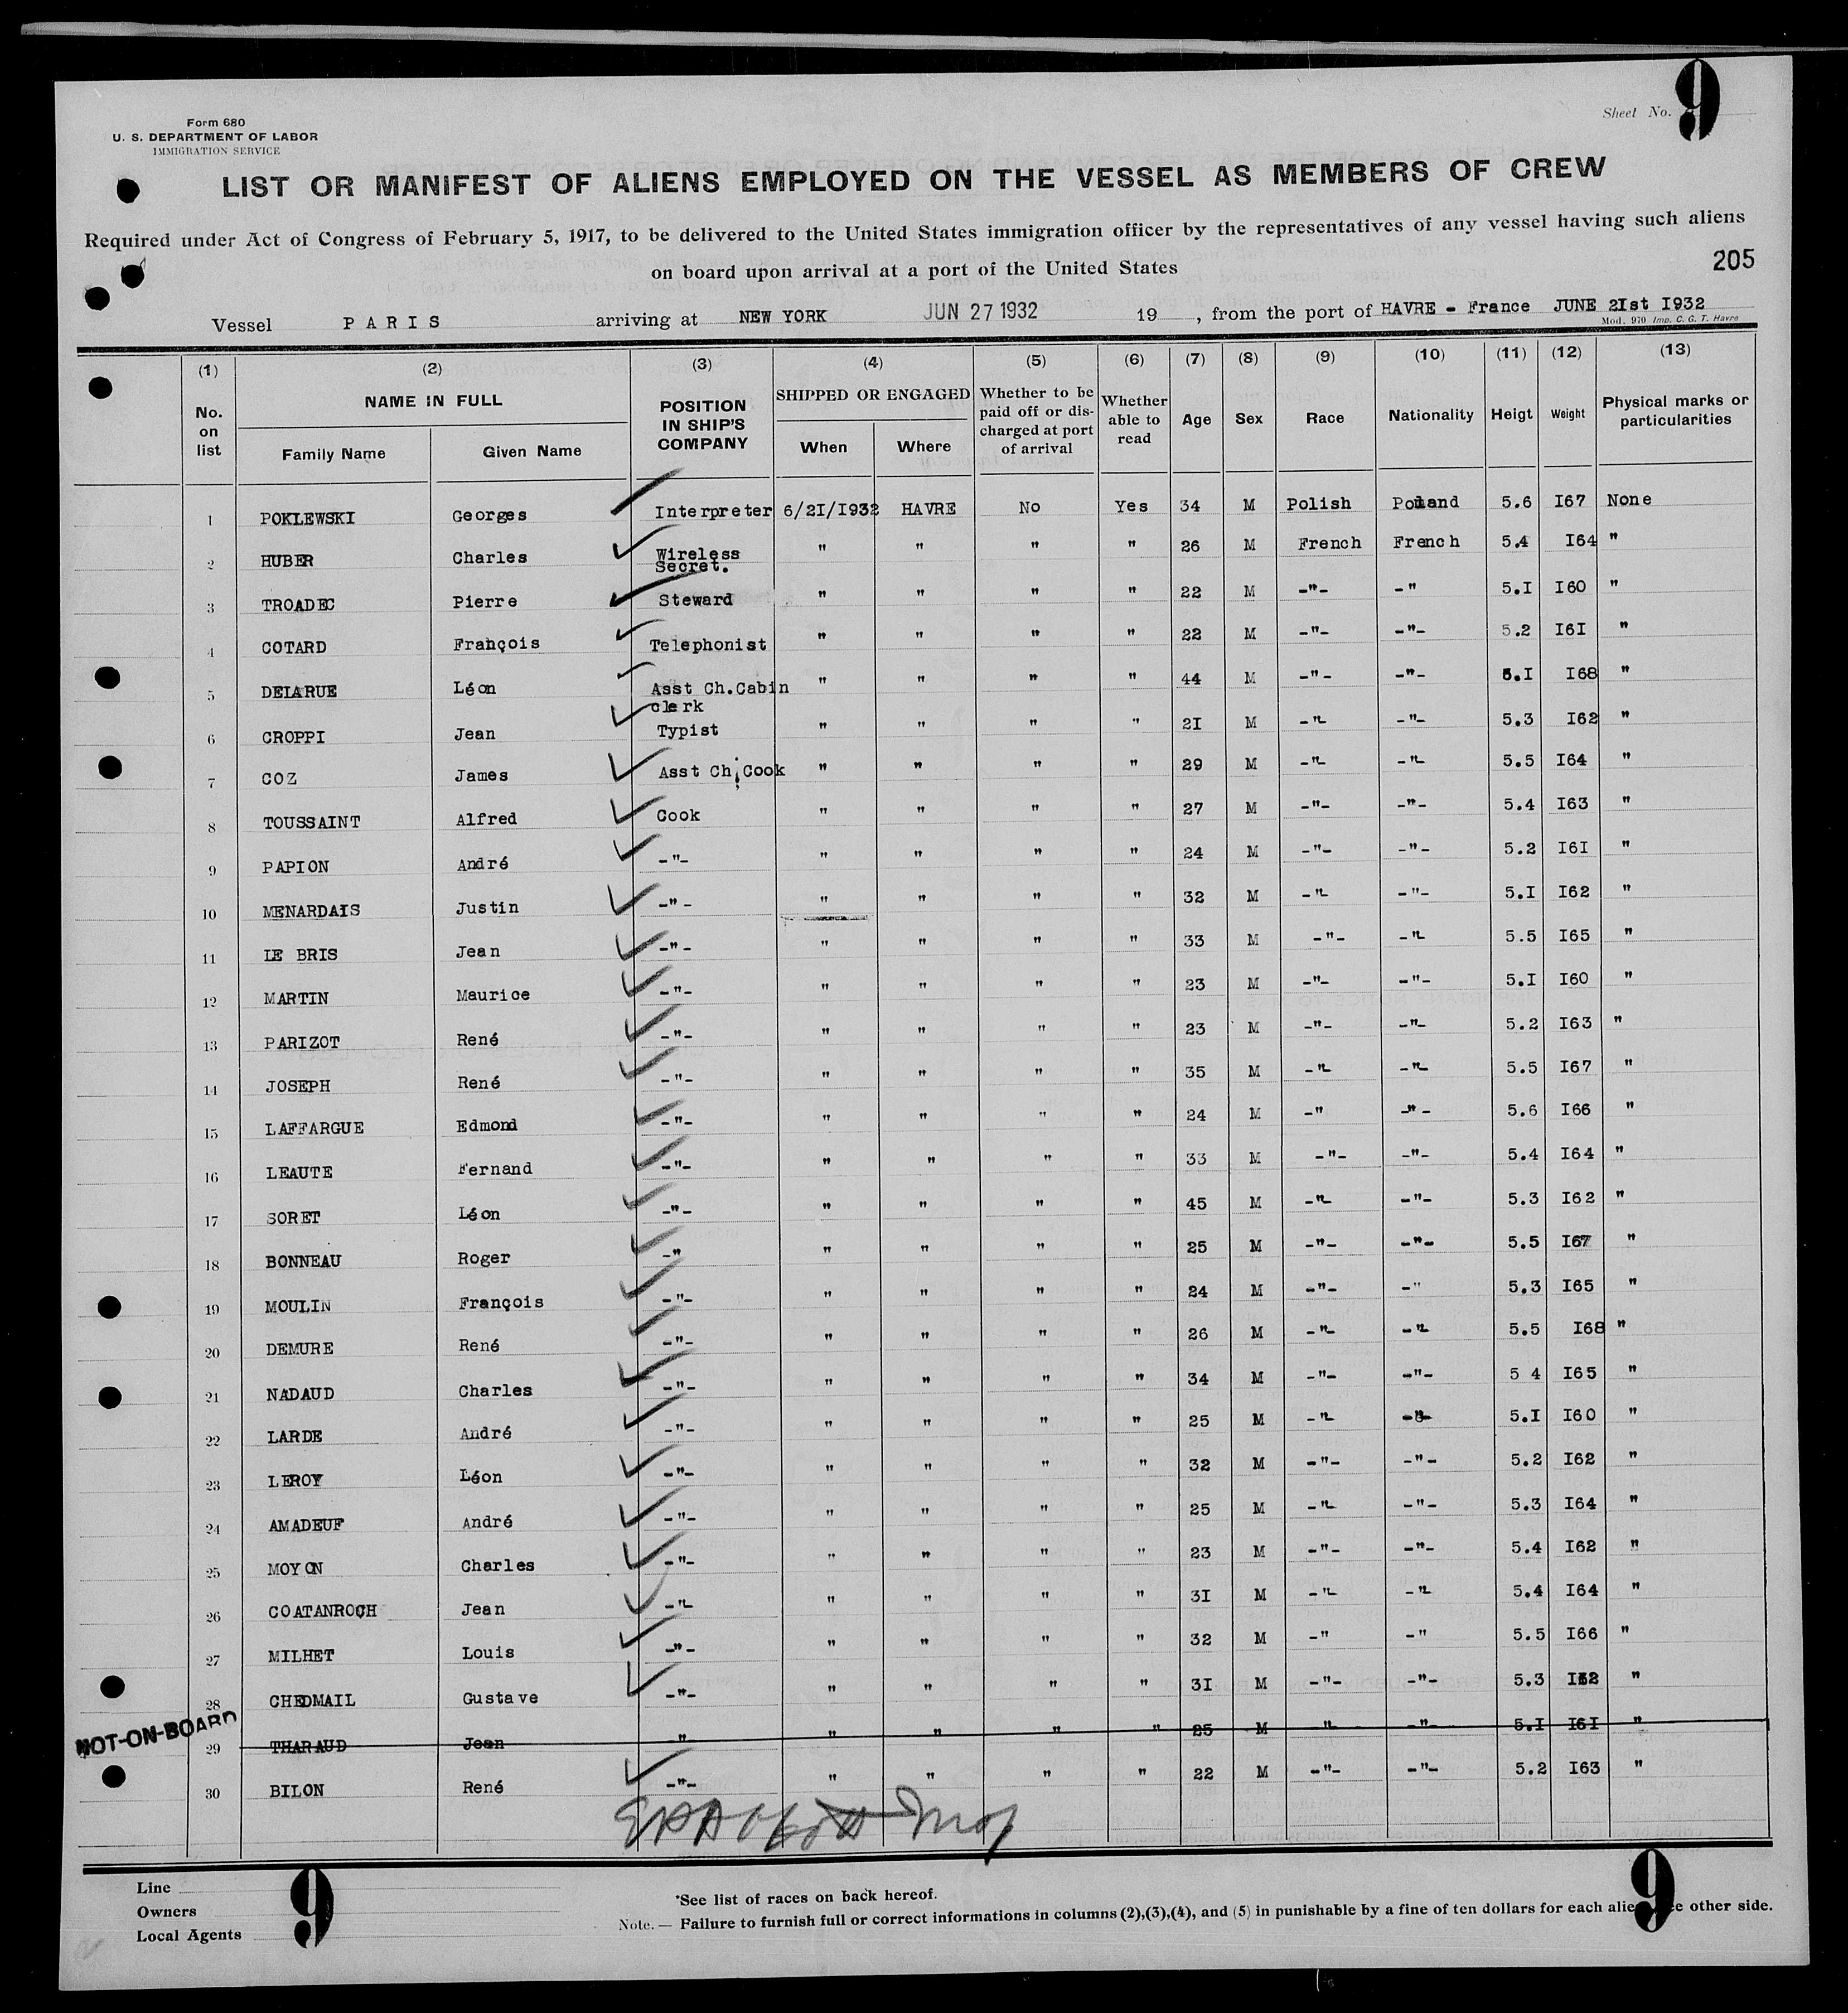 Form 680
U. S. DEPARTMENT OF LABOR
IMMIGRATION SERVICE
Sheet No. 9
LIST OR MANIFEST OF ALIENS EMPLOYED ON THE VESSEL AS MEMBERS OF CREW
Required under Act of Congress of February 5, 1917, to be delivered to the United States immigration officer by the representatives of any vessel having such aliens
on board upon arrival at a port of the United States
205
Vessel PARIS arriving at NEW YORK JUN 27 1932 19 , from the port of HAVRE - France JUNE 2Ist I932
Mod. 970 Imp. C. G. T. Havre
(1) (2) (3) (4) (5) (6) (7) (8) (9) (10) (11) (12) (13)
No. on list NAME IN FULL Family Name Given Name POSITION IN SHIP'S COMPANY SHIPPED OR ENGAGED When Where Whether to be paid off or discharged at port of arrival Whether able to read Age Sex Race Nationality Heigt Weight Physical marks or particularities
1 POKLEWSKI Georges Interpreter 6/2I/I932 HAVRE No Yes 34 M Polish Poland 5.6 I67 None
2 HUBER Charles Wireless Secret. " " " " 26 M French French 5.4 I64 "
3 TROADEC Pierre Steward " " " " 22 M -"- -" 5.I I60 "
4 COTARD François Telephonist " " " " 22 M -"- -"- 5.2 I6I "
5 DELARUE Léon Asst Ch.Cabin clerk " " " " 44 M -"- -"- 5.I I68 "
6 CROPPI Jean Typist " " " " 2I M -"- -"- 5.3 I62 "
7 COZ James Asst Ch.Cook " " " " 29 M -"- -"- 5.5 I64 "
8 TOUSSAINT Alfred Cook " " " " 27 M -"- -"- 5.4 I63 "
9 PAPION André -"- " " " " 24 M -"- -"- 5.2 I6I "
10 MENARDAIS Justin -"- " " " " 32 M -"- -"- 5.I I62 "
11 LE BRIS Jean -"- " " " " 33 M -"- -"- 5.5 I65 "
12 MARTIN Maurice -"- " " " " 23 M -"- -"- 5.I I60 "
13 PARIZOT René -"- " " " " 23 M -"- -"- 5.2 I63 "
14 JOSEPH René -"- " " " " 35 M -"- -"- 5.5 I67 "
15 LAFFARGUE Edmond -"- " " " " 24 M -" -"- 5.6 I66 "
16 LEAUTE Fernand -"- " " " " 33 M -"- -"- 5.4 I64 "
17 SORET Léon -"- " " " " 45 M -"- -"- 5.3 I62 "
18 BONNEAU Roger -" " " " " 25 M -"- -"- 5.5 I67 "
19 MOULIN François -"- " " " " 24 M -"- -" 5.3 I65 "
20 DEMURE René -"- " " " " 26 M -"- -"- 5.5 I68 "
21 NADAUD Charles -"- " " " " 34 M -"- -"- 5 4 I65 "
22 LARDE André -"- " " " " 25 M -"- -"- 5.I I60 "
23 LEROY Léon -"- " " " " 32 M -"- -"- 5.2 I62 "
24 AMADEUF André -"- " " " " 25 M -"- -"- 5.3 I64 "
25 MOYON Charles -"- " " " " 23 M -"- -"- 5.4 I62 "
26 COATANROCH Jean -"- " " " " 3I M -"- -"- 5.4 I64 "
27 MILHET Louis -"- " " " " 32 M -" -" 5.5 I66 "
28 CHEDMAIL Gustave -"- " " " " 3I M -"- -"- 5.3 "
NOT-ON-BOARD
29 THARAUD Jean " " " " " 25 M " -"- 5.I I6I "
30 BILON René -"- " " " " 22 M -"- -"- 5.2 I63 "
Line
Owners
Local Agents
9
*See list of races on back hereof.
Note. — Failure to furnish full or correct informations in columns (2),(3),(4), and (5) in punishable by a fine of ten dollars for each other side.
9